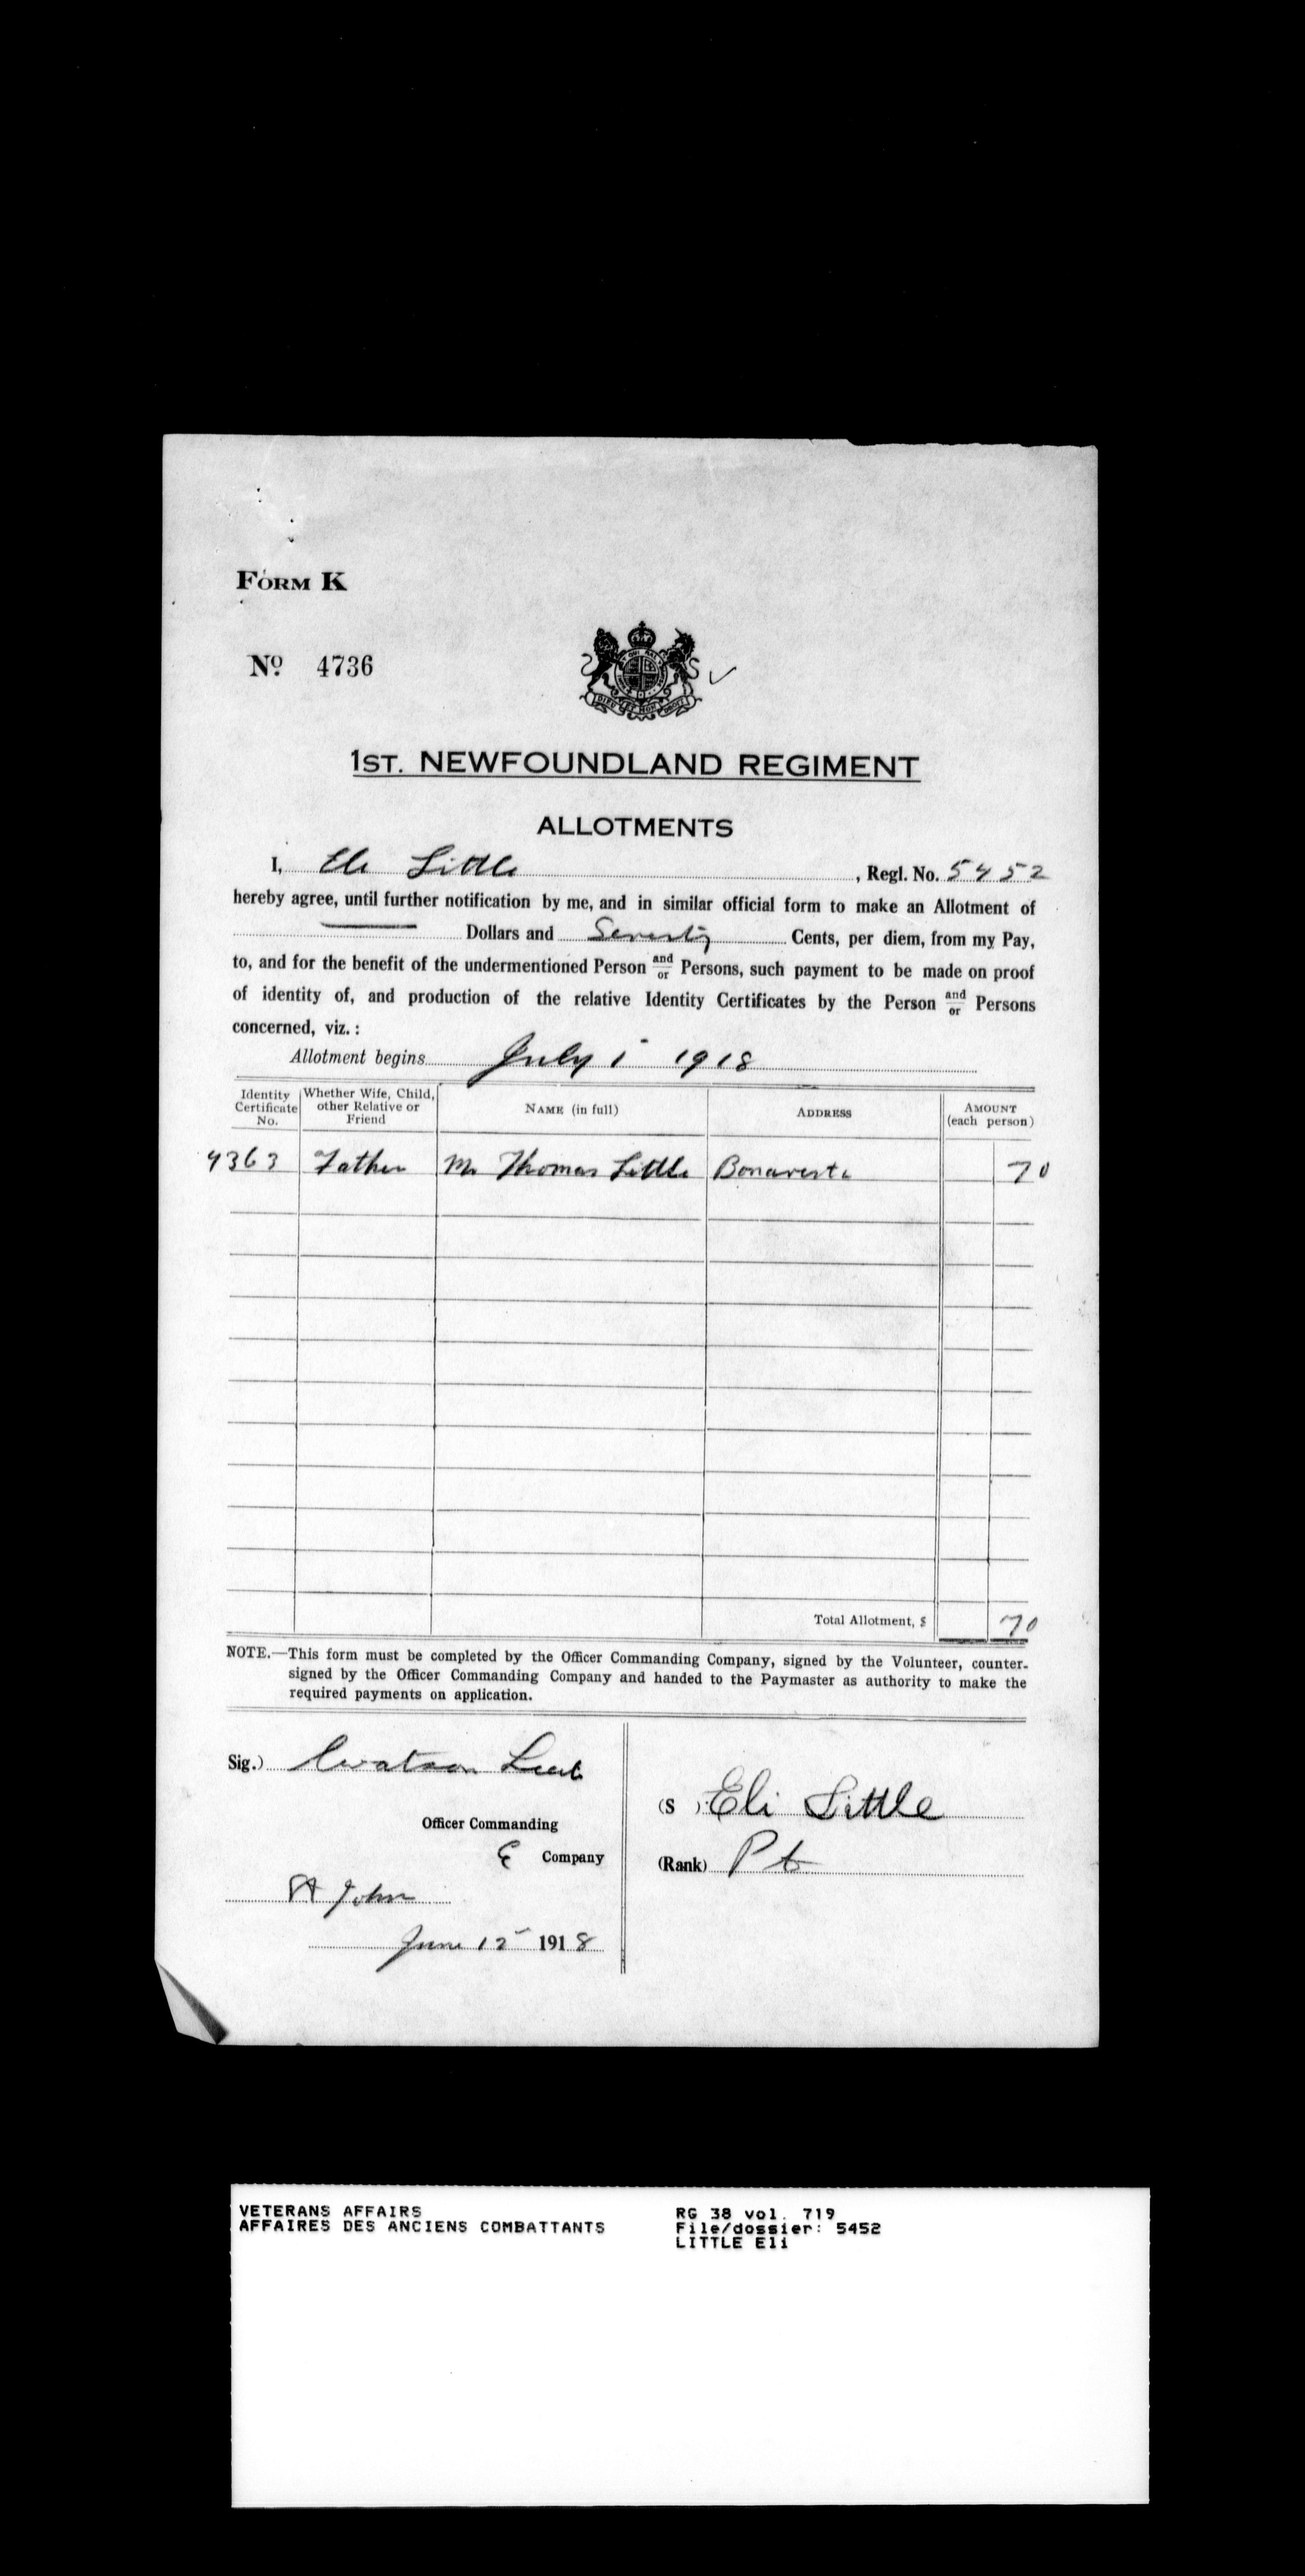 FORM K
No. 4736
1ST. NEWFOUNDLAND REGIMENT
ALLOTMENTS
I, Eli Little, Regl. No. 5452
hereby agree, until further notification by me, and in similar official form to make an Allotment of
— Dollars and Seventy Cents, per diem, from my Pay,
to, and for the benefit of the undermentioned Person and/or Persons, such payment to be made on proof
of identity of, and production of the relative Identity Certificates by the Person and/or Persons
concerned, viz.:
Allotment begins July 1 1918
Identity Certificate No. Whether Wife, Child, other Relative or Friend NAME (in full) ADDRESS AMOUNT (each person)
4363 Father Mr Thomas Little Bonavista 70
Total Allotment, $ 70
NOTE.—This form must be completed by the Officer Commanding Company, signed by the Volunteer, counter-
signed by the Officer Commanding Company and handed to the Paymaster as authority to make the
required payments on application.
Sig.) Watson Lieut
Officer Commanding
E Company
St John
June 15 1918
(S ) Eli Little
(Rank) Pt
VETERANS AFFAIRS
AFFAIRES DES ANCIENS COMBATTANTS
RG 38 vol. 719
File/dossier: 5452
LITTLE Eli